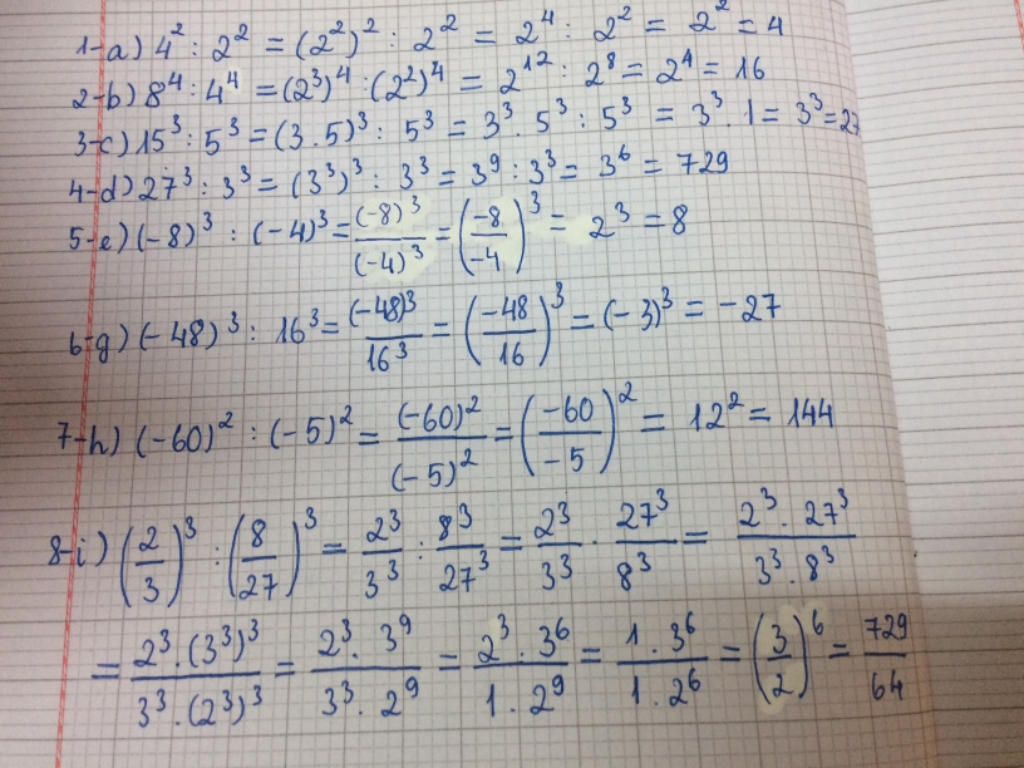 1-a) 4² : 2² = (2²)² : 2² = 2⁴ : 2² = 2² = 4
2-b) 8⁴ : 4⁴ = (2³)⁴ : (2²)⁴ = 2¹² : 2⁸ = 2⁴ = 16
3-c) 15³ : 5³ = (3 . 5)³ : 5³ = 3³ . 5³ : 5³ = 3³ . 1 = 3³ = 27
4-d) 27³ : 3³ = (3³)³ : 3³ = 3⁹ : 3³ = 3⁶ = 729
5-e) (-8)³ : (-4)³ = (-8)³/(-4)³ = (-8/-4)³ = 2³ = 8
6-g) (-48)³ : 16³ = (-48)³/16³ = (-48/16)³ = (-3)³ = -27
7-h) (-60)² : (-5)² = (-60)²/(-5)² = (-60/-5)² = 12² = 144
8-i) (2/3)³ : (8/27)³ = 2³/3³ : 8³/27³ = 2³/3³ . 27³/8³ = 2³ . 27³/3³ . 8³
= 2³ . (3³)³/3³ . (2³)³ = 2³ . 3⁹/3³ . 2⁹ = 2³ . 3⁶/1 . 2⁹ = 1 . 3⁶/1 . 2⁶ = (3/2)⁶ = 729/64